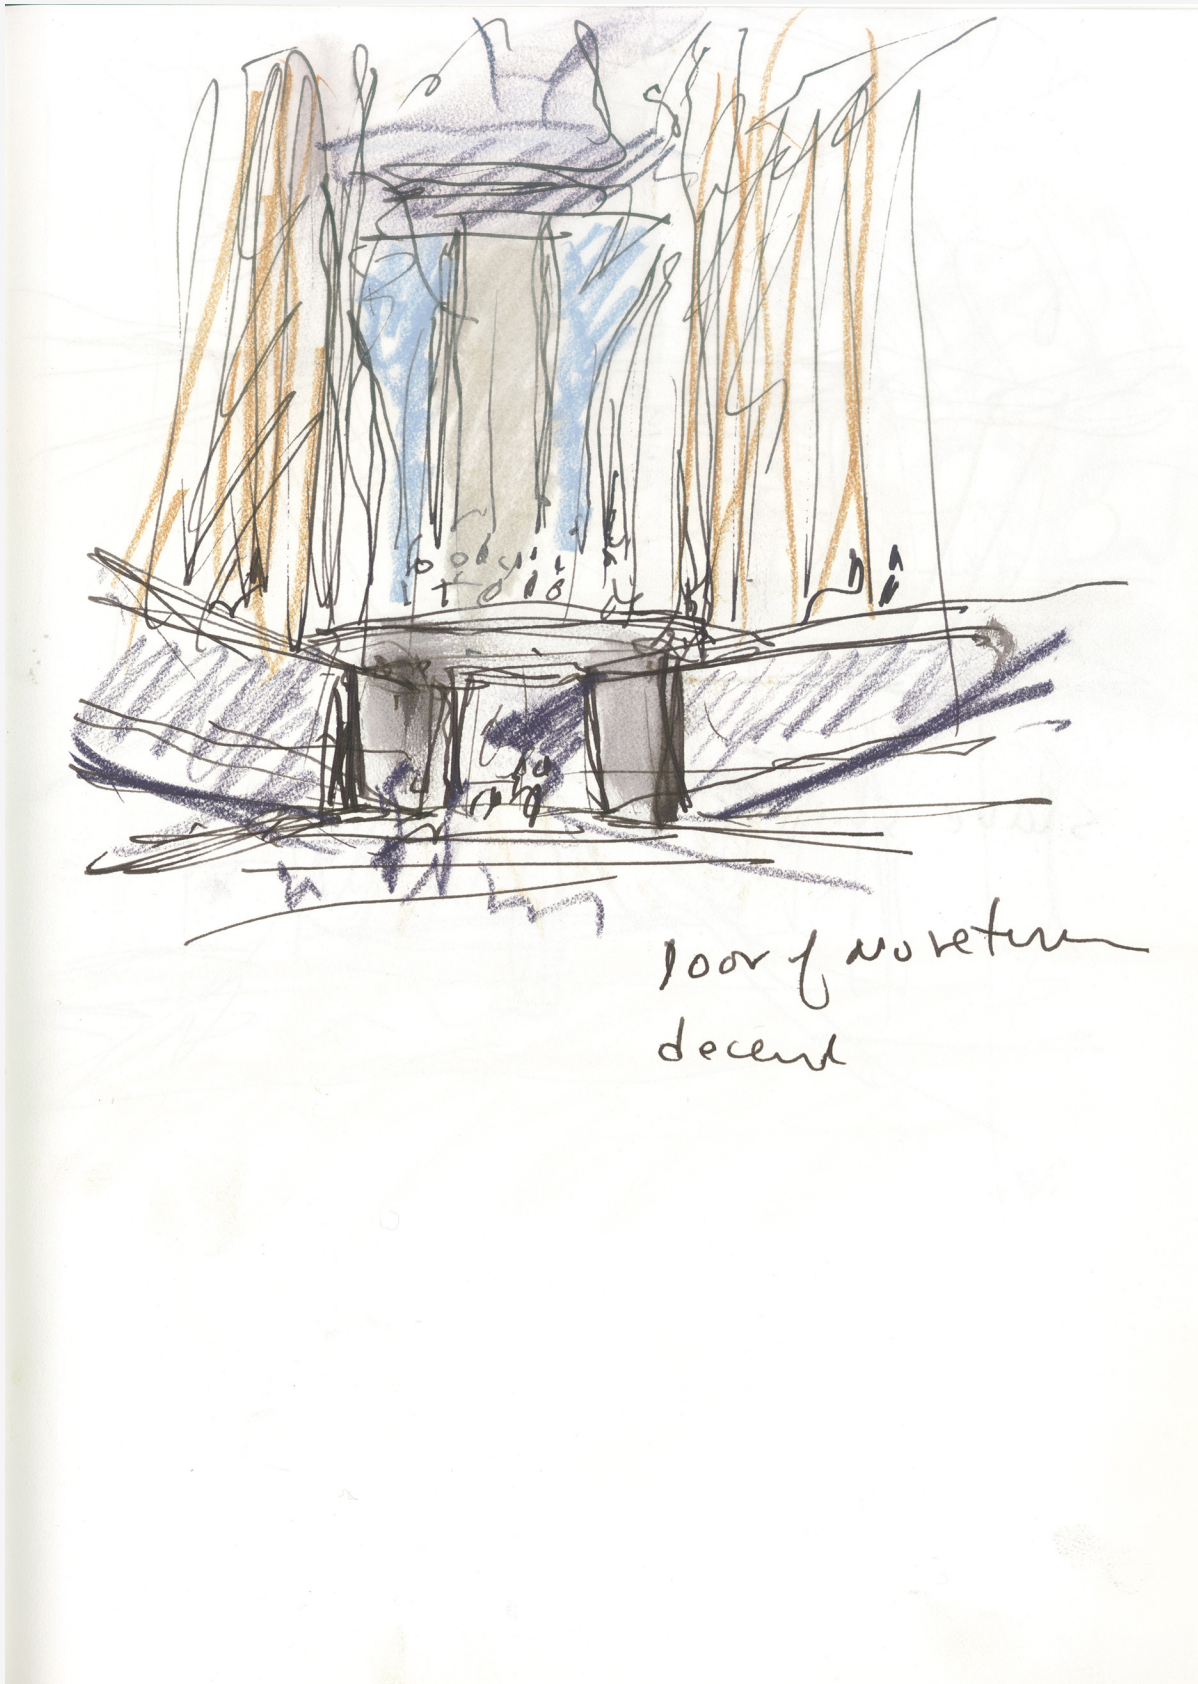 Door of No return
decend